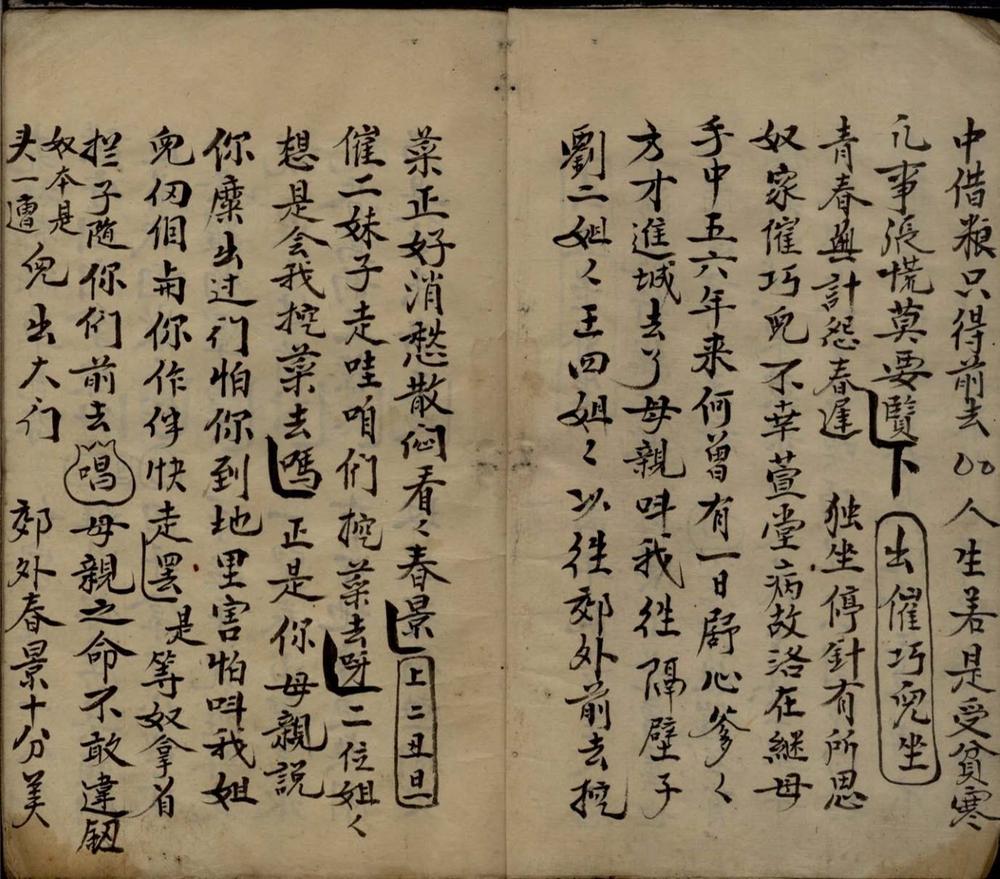 中借粮只得前去〻人生若是受貧寒
凡事張慌莫要覽下 出催巧兒坐
青春無計怨春遲 独坐停針有所思
奴家催巧兒不幸萱堂病故洛在継母
手中五六年来何曽有一日舒心爹〻
方才進城去了母親呌我徃隔壁子
劉二姐〻王四姐〻以徃郊外前去挖
菜正好消愁散悶看〻春景上二丑旦
催二妹子走哇咱们挖菜去呀二位姐〻
想是会我挖菜去嗎正是你母親説
你糜出过门怕你到地里害怕呌我姐
兒仴個同你作伴快走罢是等奴拿肻
拦子随你们前去唱母親之命不敢違
奴本是头一遭兒出大门 郊外春景十分美